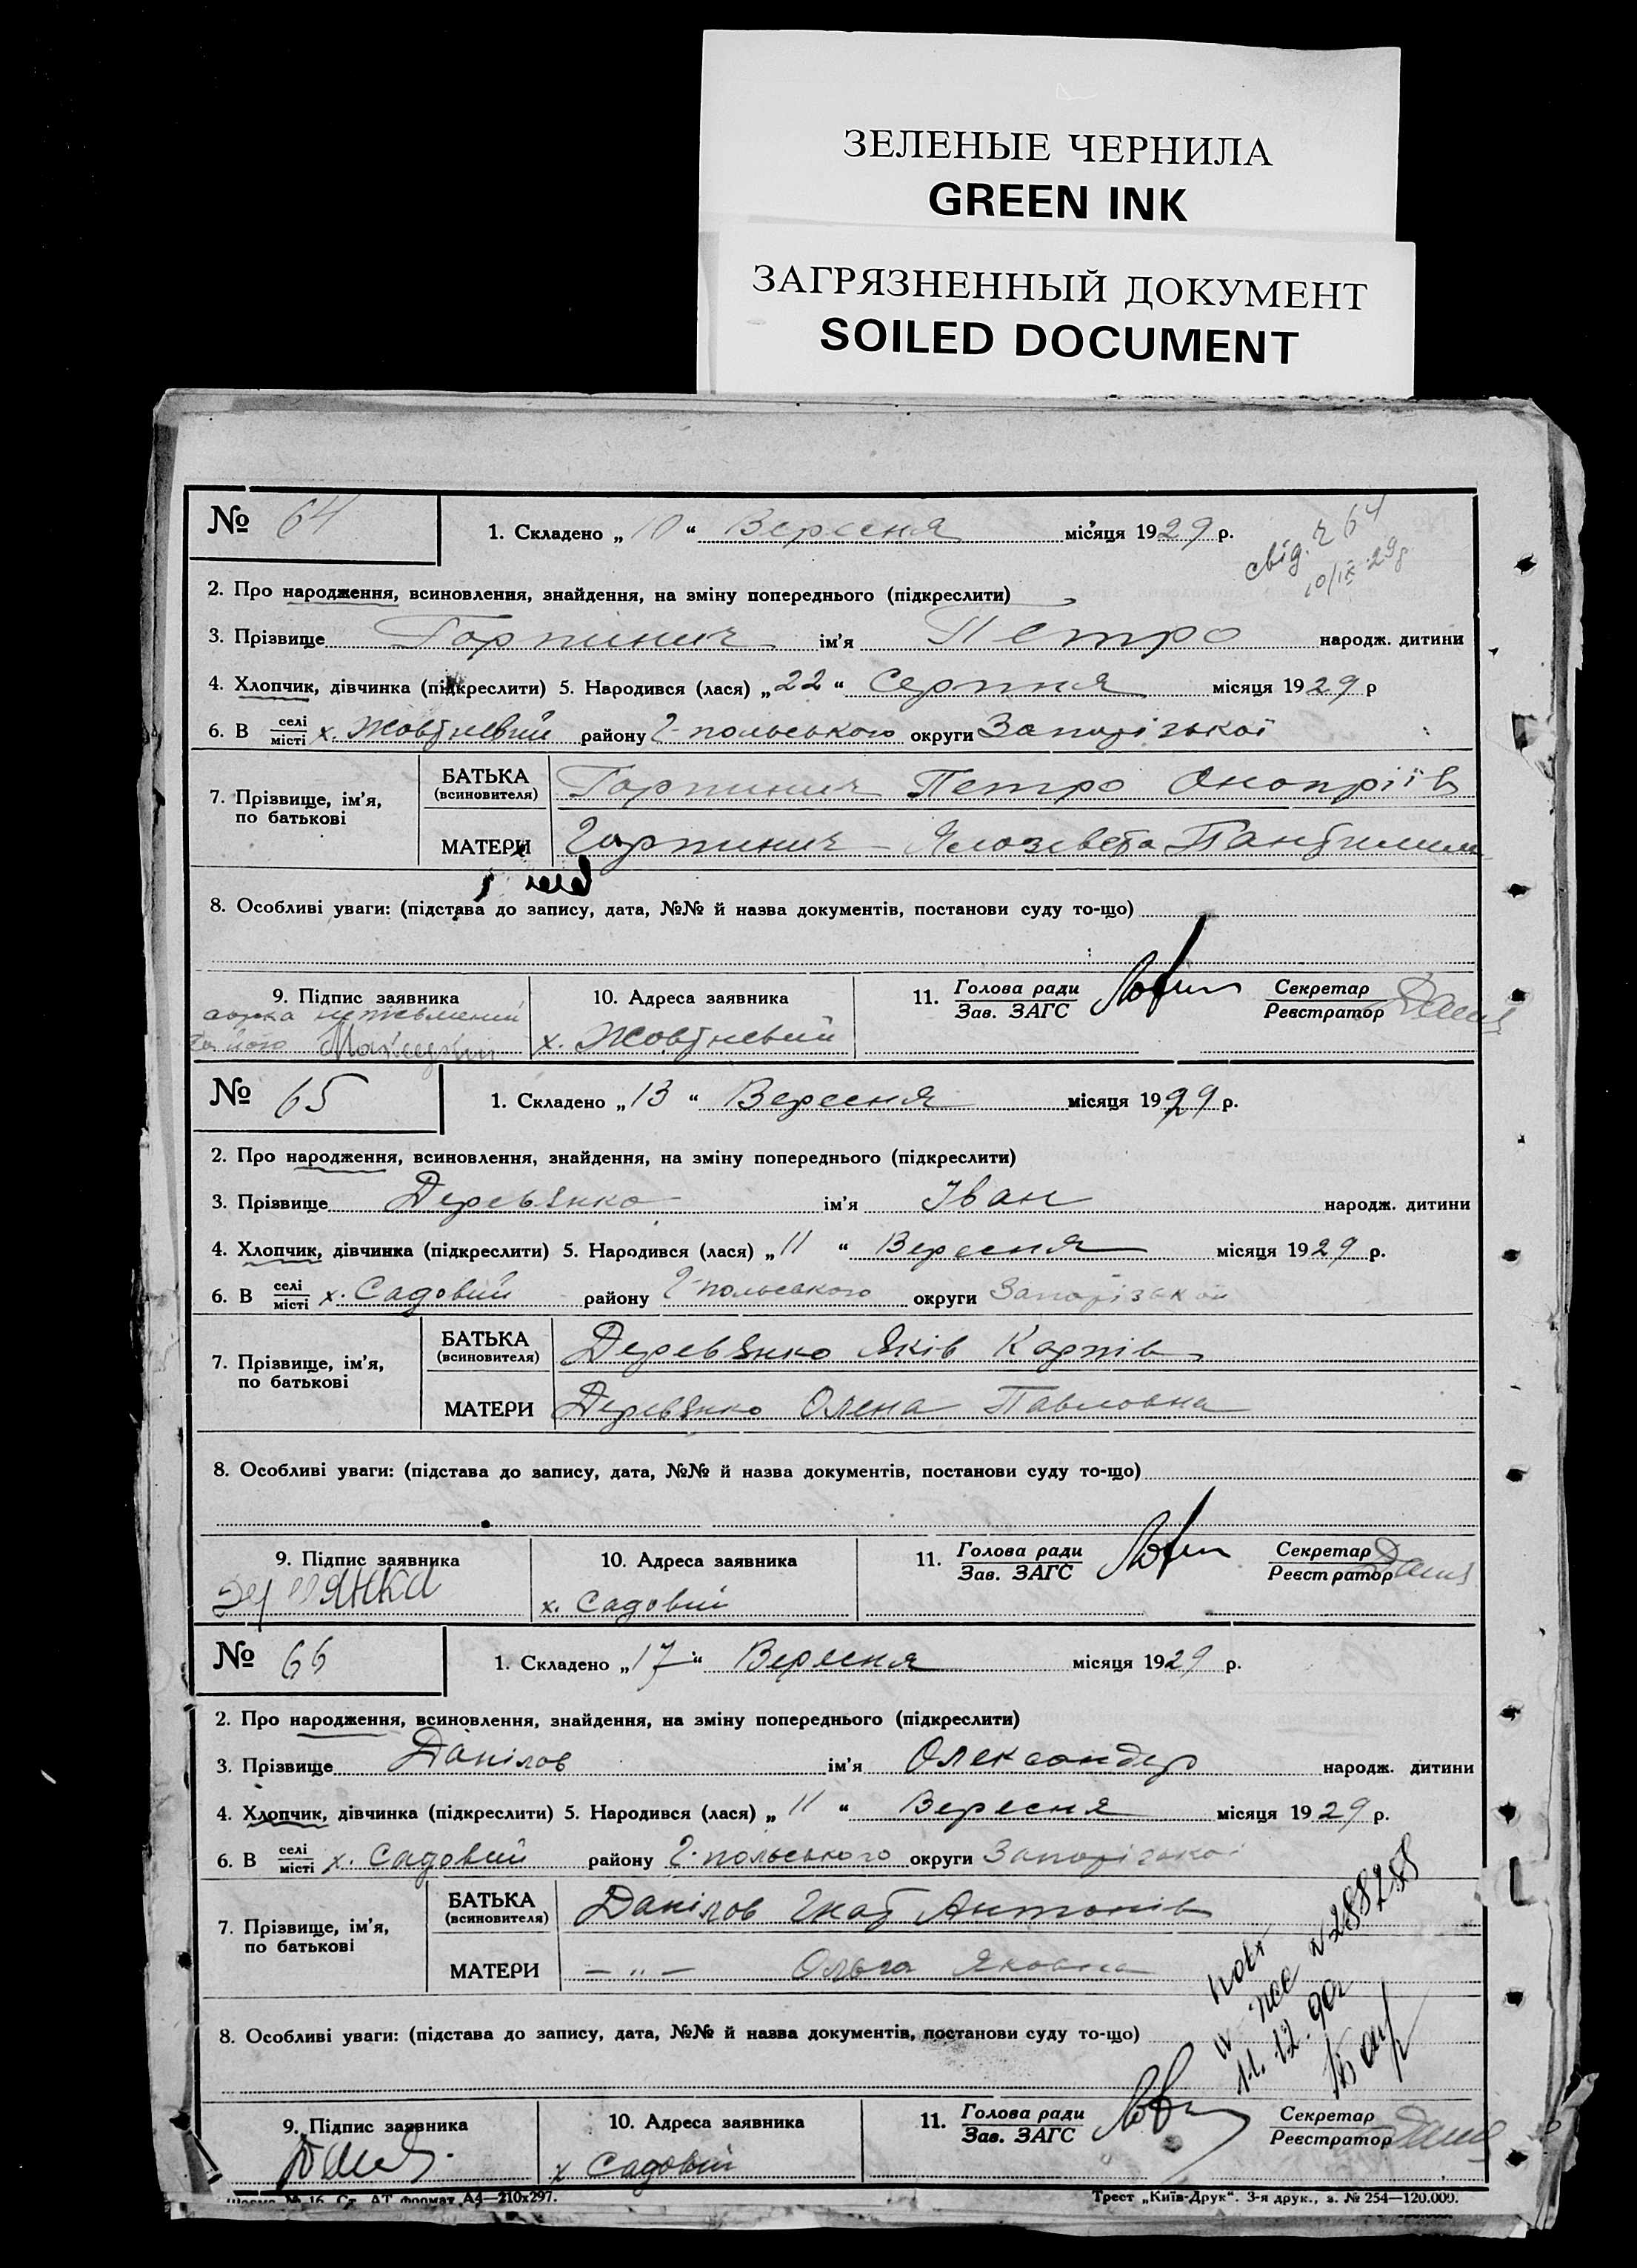 ЗЕЛЕНЫЕ ЧЕРНИЛА
GREEN INK
ЗАГРЯЗНЕННЫЙ ДОКУМЕНТ
SOILED DOCUMENT
№ 64
1. Складено „10“ Вересня місяця 1929 р.
свід. ч 64
10/IX 29р
2. Про народження, всиновлення, знайдення, на зміну попереднього (підкреслити)
3. Прізвище Горпинич ім'я Петро народж. дитини
4. Хлопчик, дівчинка (підкреслити) 5. Народився (лася) „22“ Серпня місяця 1929 р
6. В селі/місті х. Жовтневий району Г-польського округи Запорізької
7. Прізвище, ім'я, по батькові
БАТЬКА (всиновителя) Горпинич Петро Онопріїв
МАТЕРИ Горпинич
8. Особливі уваги: (підстава до запису, дата, №№ й назва документів, постанови суду то-що)
9. Підпис заявника
10. Адреса заявника
11. Голова ради
Зав. ЗАГС
Секретар
Реєстратор
х. Жовтневий
№ 65
1. Складено „13“ Вересня місяця 1929 р.
2. Про народження, всиновлення, знайдення, на зміну попереднього (підкреслити)
3. Прізвище Деревянко ім'я Іван народж. дитини
4. Хлопчик, дівчинка (підкреслити) 5. Народився (лася) „11“ Вересня місяця 1929 р.
6. В селі/місті х. Садовий району Г-польського округи Запорізької
7. Прізвище, ім'я, по батькові
БАТЬКА (всиновителя) Деревянко Яків Карпів
МАТЕРИ Деревянко Олена Павловна
8. Особливі уваги: (підстава до запису, дата, №№ й назва документів, постанови суду то-що)
9. Підпис заявника
10. Адреса заявника
11. Голова ради
Зав. ЗАГС
Секретар
Реєстратор
х. Садовий
№ 66
1. Складено „17“ Вересня місяця 1929 р.
2. Про народження, всиновлення, знайдення, на зміну попереднього (підкреслити)
3. Прізвище Данілов ім'я Олександер народж. дитини
4. Хлопчик, дівчинка (підкреслити) 5. Народився (лася) „11“ Вересня місяця 1929 р.
6. В селі/місті х. Садовий району Г-польського округи Запорізької
7. Прізвище, ім'я, по батькові
БАТЬКА (всиновителя) Данілов Гнат Антонів
МАТЕРИ — „ — Ольга Яковна
№ 288288
11.12.90г
8. Особливі уваги: (підстава до запису, дата, №№ й назва документів, постанови суду то-що)
9. Підпис заявника
10. Адреса заявника
11. Голова ради
Зав. ЗАГС
Секретар
Реєстратор
х Садовий
№ 16. Ст. АТ формат А4—210х297.
Трест „Київ-Друк“. 3-я друк., з. № 254—120.000.